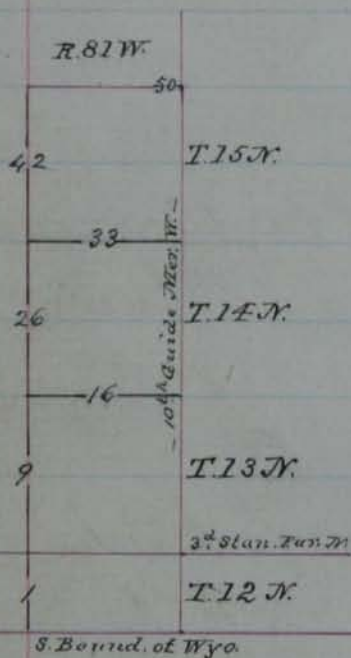 R. 81 W.
50
42
T. 15 N.
33
10th Guide Mer. W.
26
T. 14 N.
16
9
T. 13 N.
3d Stan. Par. N.
1
T. 12 N.
S. Bound. of Wyo.